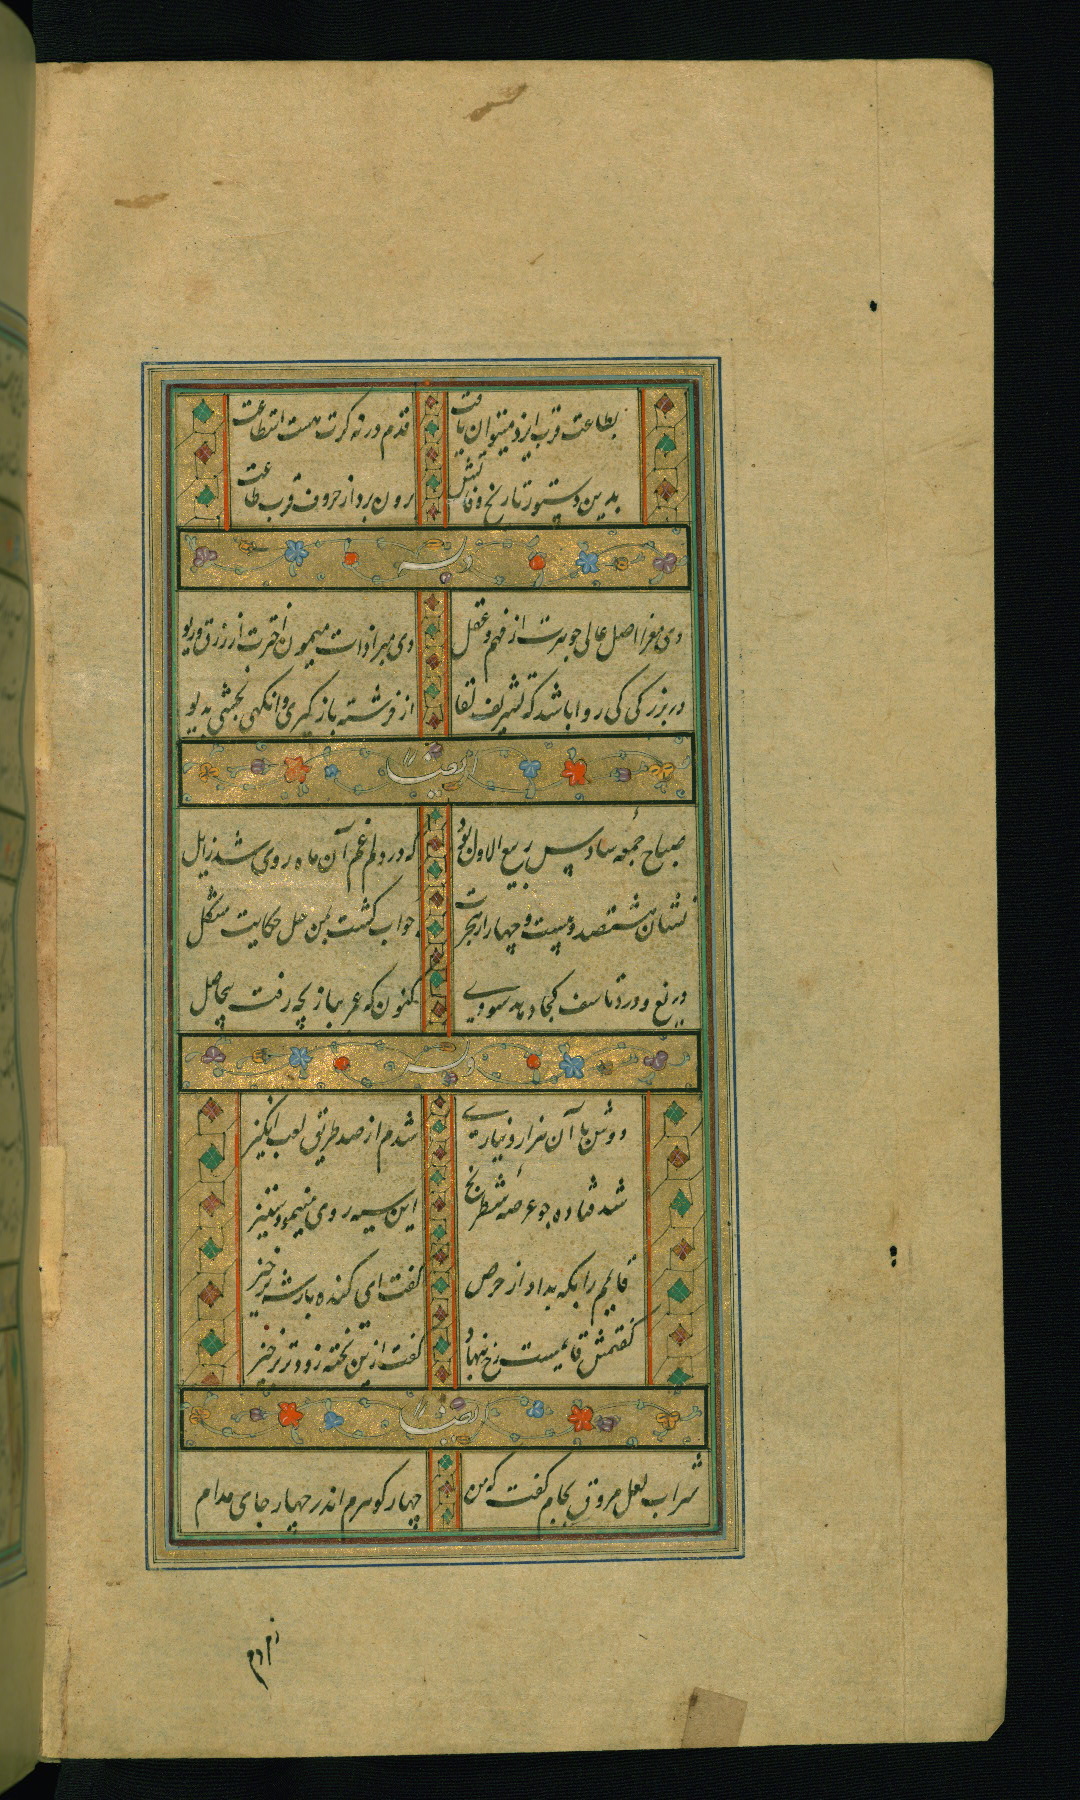 بطاعت قرب ایزد میتوان یافت
قدم در نه کرت هست استطاعت
بدین دستور تاریخ وفاتش
برون برد از حروف قرب طاعت
وله
وی معرا اصل عالی جوهرت از فهم و عقل
وی مبرا ذات میمون اخترت از زرق و ریو
در بزرکی کی روا باشد که تشریف ثقات
از فرشته باز کیری وانکهی بخشی بدیو
ایضا
صباح جمعه سادس ربیع الاول بود
که در دلم غم آن ماه روی شد زایل
نشان هشتصد و بیست و چهار از هجرت
جواب کشت بمن حل حکایت مشکل
دریغ و درد و تاسف کجا دهد سودی
کنون که عمر ببازیچه رفت بیحاصل
وله
دوش با آن هزار
شدم از صد طریق لعب انکیز
شد فتاده چو عرصه شطرنج
این سیه روی
قایم را بکه بداو از حرص
کفت ای کنده بار شه برخیز
کفتمش قایمست رخ بنهاد
کفت ازین تخته زودتر برخیز
ایضا
شراب لعل مروق بجام کفت که من
چهار کوهرم اندر چهار جای مدام
زمردم